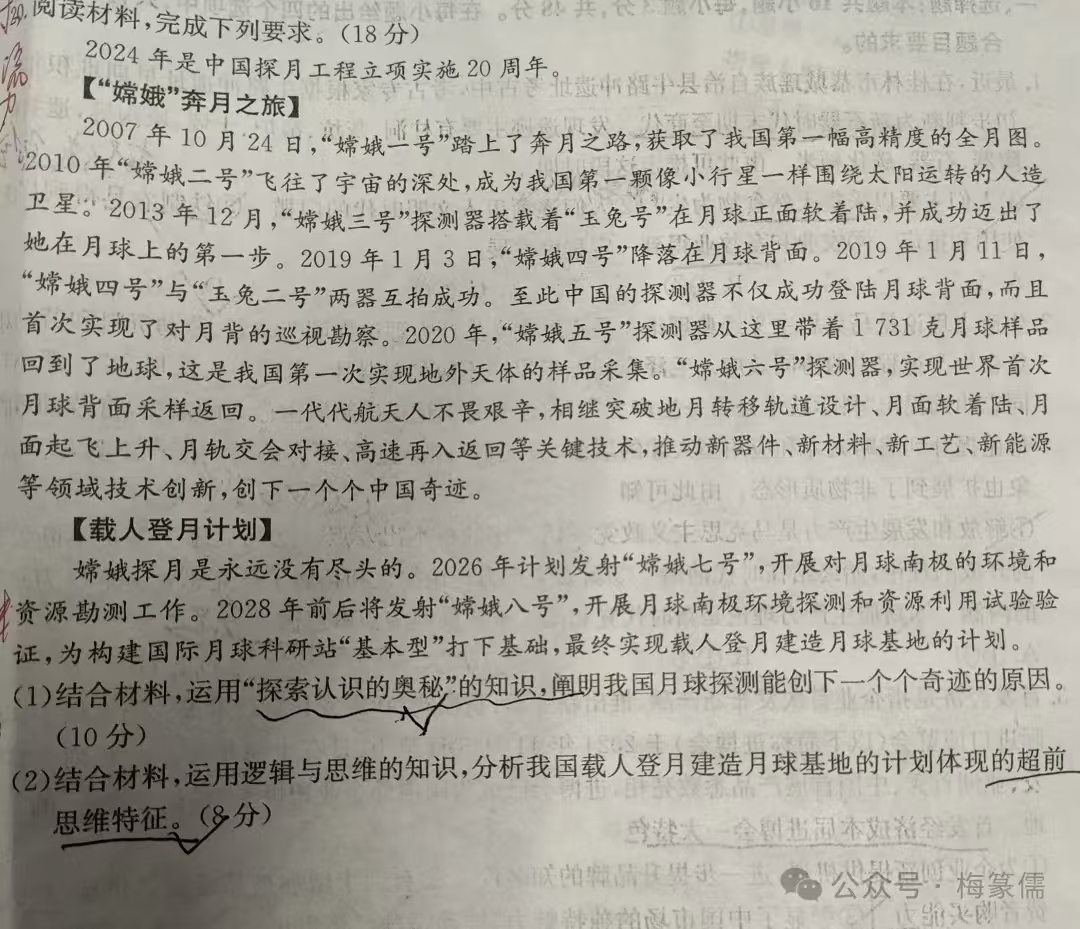 20. 阅读材料,完成下列要求。(18分)
2024年是中国探月工程立项实施20周年。
【“嫦娥”奔月之旅】
2007年10月24日,“嫦娥一号”踏上了奔月之路,获取了我国第一幅高精度的全月图。
2010年“嫦娥二号”飞往了宇宙的深处,成为我国第一颗像小行星一样围绕太阳运转的人造
卫星。2013年12月,“嫦娥三号”探测器搭载着“玉兔号”在月球正面软着陆,并成功迈出了
她在月球上的第一步。2019年1月3日,“嫦娥四号”降落在月球背面。2019年1月11日,
“嫦娥四号”与“玉兔二号”两器互拍成功。至此中国的探测器不仅成功登陆月球背面,而且
首次实现了对月背的巡视勘察。2020年,“嫦娥五号”探测器从这里带着1731克月球样品
回到了地球,这是我国第一次实现地外天体的样品采集。“嫦娥六号”探测器,实现世界首次
月球背面采样返回。一代代航天人不畏艰辛,相继突破地月转移轨道设计、月面软着陆、月
面起飞上升、月轨交会对接、高速再入返回等关键技术,推动新器件、新材料、新工艺、新能源
等领域技术创新,创下一个个中国奇迹。
【载人登月计划】
嫦娥探月是永远没有尽头的。2026年计划发射“嫦娥七号”,开展对月球南极的环境和
资源勘测工作。2028年前后将发射“嫦娥八号”,开展月球南极环境探测和资源利用试验验
证,为构建国际月球科研站“基本型”打下基础,最终实现载人登月建造月球基地的计划。
(1)结合材料,运用“探索认识的奥秘”的知识,阐明我国月球探测能创下一个个奇迹的原因。
(10分)
(2)结合材料,运用逻辑与思维的知识,分析我国载人登月建造月球基地的计划体现的超前
思维特征。(8分)
公众号·梅篆儒